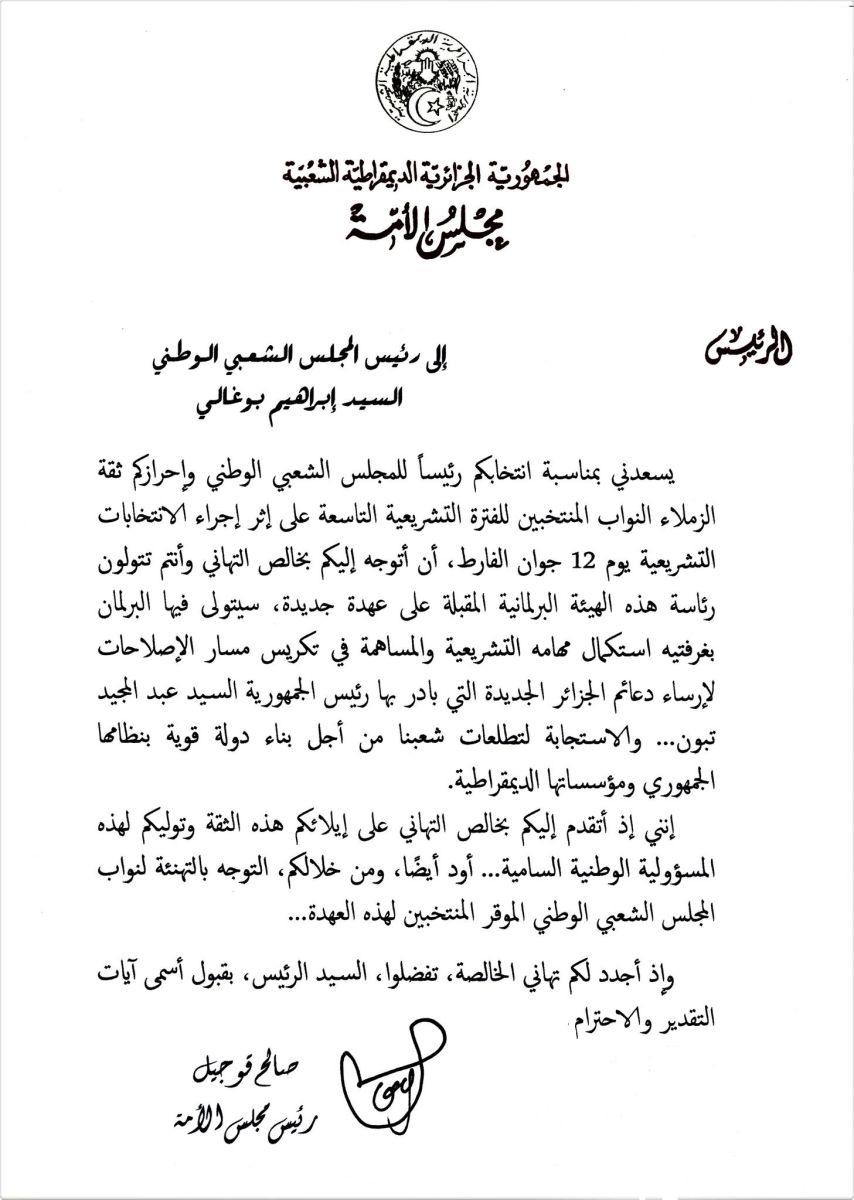 الجمهورية الجزائرية الديمقراطية الشعبية
الجمهُوريّة الجزائريّة الديمقراطيّة الشعبيّة
مجلسُ الأمّة
الرئيس
إلى رئيس المجلس الشعبي الوطني
السيد إبراهيم بوغالي
يسعدني بمناسبة انتخابكم رئيساً للمجلس الشعبي الوطني وإحرازكم ثقة
الزملاء النواب المنتخبين للفترة التشريعية التاسعة على إثر إجراء الانتخابات
التشريعية يوم 12 جوان الفارط، أن أتوجه إليكم بخالص التهاني وأنتم تتولون
رئاسة هذه الهيئة البرلمانية المقبلة على عهدة جديدة، سيتولى فيها البرلمان
بغرفتيه استكمال مهامه التشريعية والمساهمة في تكريس مسار الإصلاحات
لإرساء دعائم الجزائر الجديدة التي بادر بها رئيس الجمهورية السيد عبد المجيد
تبون... والاستجابة لتطلعات شعبنا من أجل بناء دولة قوية بنظامها
الجمهوري ومؤسساتها الديمقراطية.
إنني إذ أتقدم إليكم بخالص التهاني على إيلائكم هذه الثقة وتوليكم لهذه
المسؤولية الوطنية السامية... أود أيضًا، ومن خلالكم، التوجه بالتهنئة لنواب
المجلس الشعبي الوطني الموقر المنتخبين لهذه العهدة...
وإذ أجدد لكم تهاني الخالصة، تفضلوا، السيد الرئيس، بقبول أسمى آيات
التقدير والاحترام
صالح قوجيل
رئيس مجلس الأمة